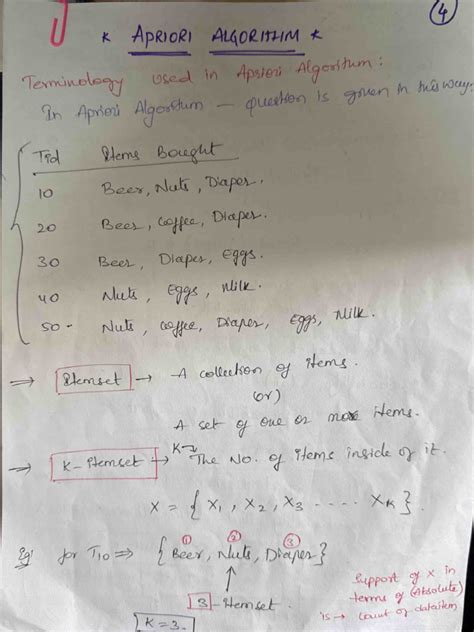 4
* APRIORI ALGORITHM *
Terminology used in Apriori Algorithm:
In Apriori Algorithm — question is given in this way:
Tid Items Bought
10 Beer, Nuts, Diaper.
20 Beer, Coffee, Diaper.
30 Beer, Diaper, Eggs.
40 Nuts, Eggs, Milk.
50 - Nuts, Coffee, Diaper, Eggs, Milk.
⇒ Itemset → A collection of items.
(or)
A set of one or more items.
⇒ K-Itemset → K→ The No. of items inside of it.
X = { X1, X2, X3 .... XK}.
Eg: for T10 ⇒ {Beer, Nuts, Diaper}
1 2 3
3-Itemset.
K=3.
Support of X in
terms of (Absolute)
is → count of